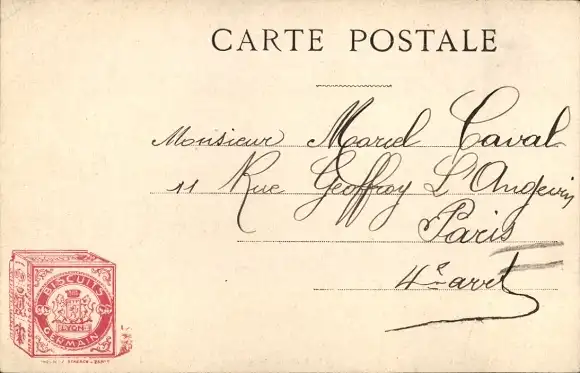 CARTE POSTALE
Monsieur Marcel Caval
11 Rue Geoffroy L'Angevin
Paris
4e arrt
BISCUITS
LYON
GERMAIN